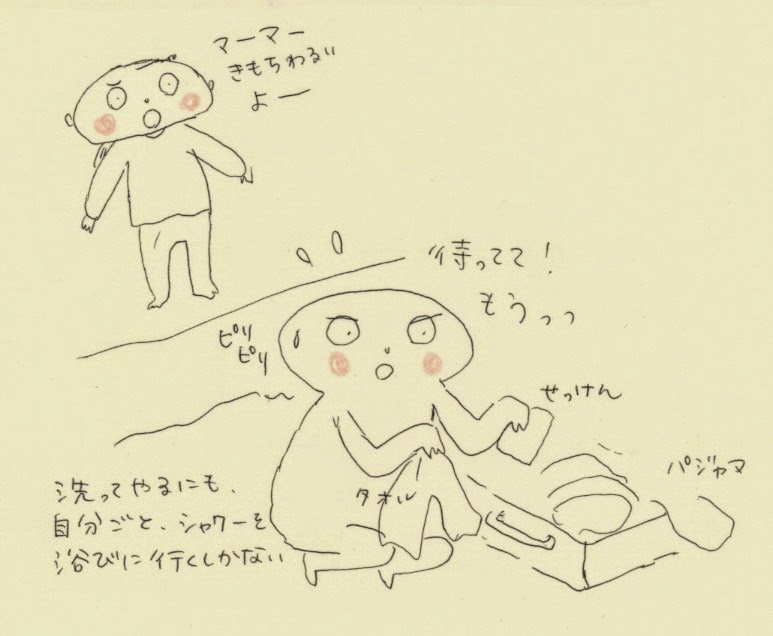 マーマー
きもちわるい
よー
待ってて！
もうっっ
ピリ
ピリ
せっけん
パジャマ
タオル
洗ってやるにも、
自分ごと、シャワーを
浴びに行くしかない